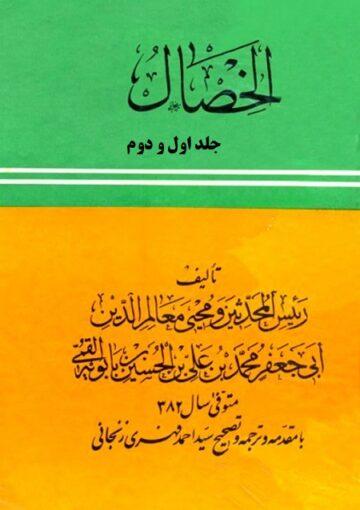 الخصال
جلد اول و دوم
تألیف
رئیس المحدثین و محیی معالم الدین
أبی جعفر محمد بن علی بن الحسین بن بابویه القمی
متوفی سال ۳۸۲
با مقدمه و ترجمه و تصحیح سید احمد فهری زنجانی